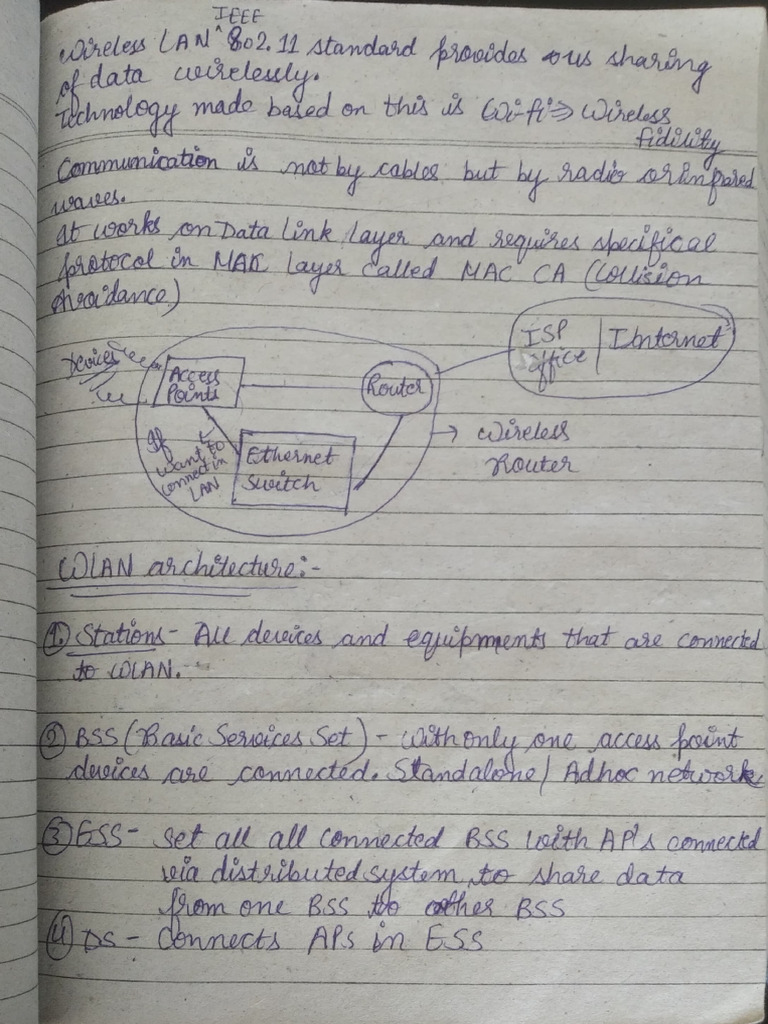 IEEE
Wireless LAN ^ 802.11 standard provides us sharing
of data wirelessly.
Technology made based on this is Wi-fi => Wireless
fidility
Communication is not by cables but by radio or infrared
waves.
It works on Data Link layer and requires specifical
protocol in MAC layer called MAC CA (Collision
Avoidance)
Devices
Access
Points
Router
ISP
office | Internet
If
want to
connect in
LAN
Ethernet
Switch
→ Wireless
Router
WLAN architecture:-
1. Stations - All devices and equipments that are connected
to WLAN.
2 BSS (Basic Services Set) - With only one access point
devices are connected. Standalone / Adhoc network
3 ESS - set all all connected BSS with AP's connected
via distributed system to share data
from one BSS to other BSS
4 DS - Connects APs in ESS